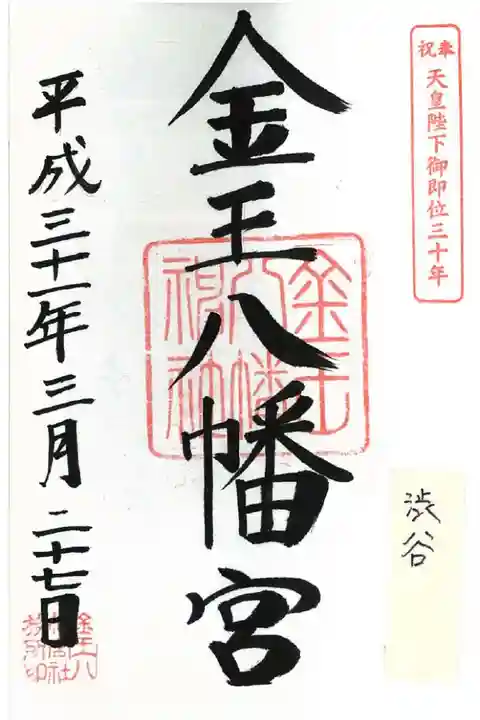 奉祝
天皇陛下御即位三十年
渋谷
金王八幡宮
金王
八幡
神社
平成三十一年三月二十七日